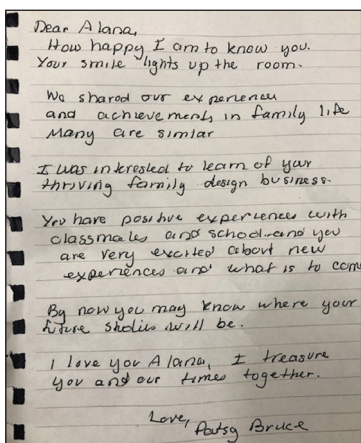 Dear Alana,
How happy I am to know you.
Your smile lights up the room.
We shared our experiences
and achievements in family life
Many are similar
I was interested to learn of your
thriving family design business.
You have positive experiences with
classmates and school-and you
are very excited about new
experiences and what is to come
By now you may know where your
future studies will be.
I love you Alana, I treasure
you and our times together.
Love,
Patsy Bruce